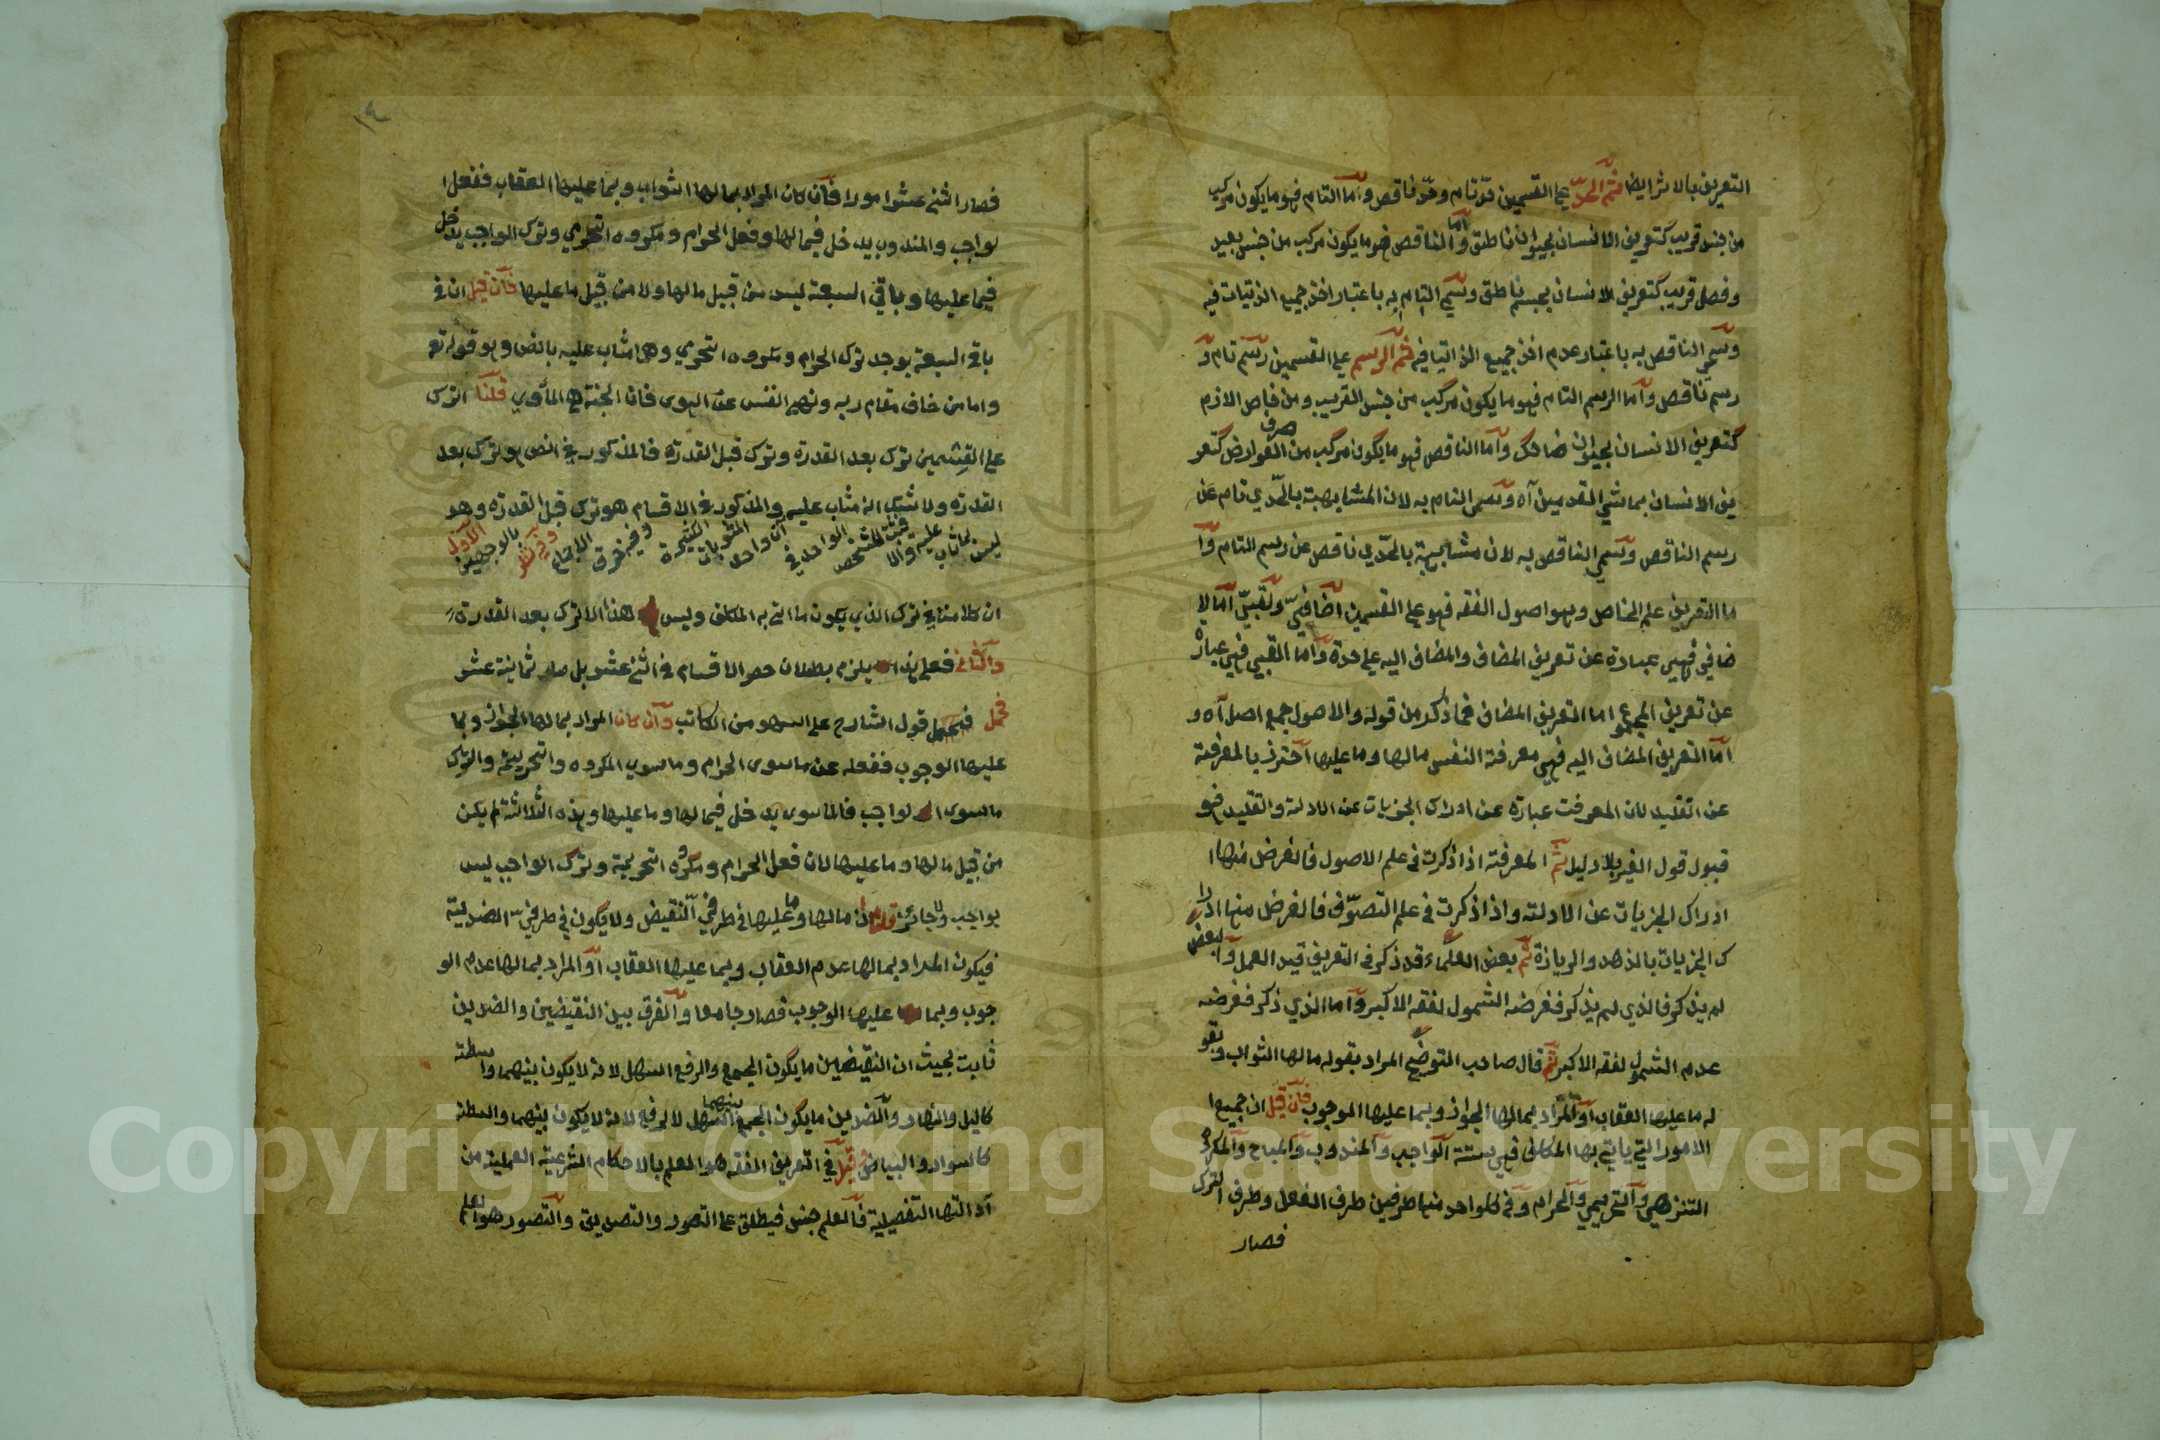 التعريف بالاثر ايضا ثم الحد على القسمين حد تام وحد ناقص واما التام فهو ما يكون مركب
من جنس قريب كتعريف الانسان بحيوان ناطق واما الناقص فهو ما يكون مركب من جنس بعيد
وفصل قريب كتعريف الانسان بجسم ناطق وسمي التام به باعتبار اخذ جميع الذاتيات فيه
وسمي الناقص به باعتبار عدم اخذ جميع الذاتيا فيه ثم الرسم على القسمين رسم تام و
رسم ناقص واما الرسم التام فهو ما يكون مركب من جنس القريب ومن خاص الازم
كتعريف الانسان بحيوان ضاحك واما الناقص فهو ما يكون مركب من صرف العوارض كتعر
يف الانسان بماشي القدمين آه وسمى التام به لان المشابهة بالحدي تام عن
رسم الناقص وسمي الناقص به لان مشابهة بالحدي ناقص عن رسم التام وا
ما التعريف علم الخاص وهو اصول الفقه فهو على القسمين اضافي ولقبي اما الا
ضافي فهي عبارة عن تعريف المضاف والمضاف اليه على حدة واما القبي فهي عبارة
عن تعريف المجموع اما التعريف المضاف فما ذكر من قوله والاصول جمع اصل آه و
اما التعريف المضاف اليه فهي معرفة النفس مالها وما عليها احترز بالمعرفة
عن اتقليد لان المعرفت عبارة عن ادراك الجزيات عن الادلة والتقليد فهو
قبول قول الغير بلا دليل ثم المعرفة اذا ذكرت في علم الاصول فالغرض منها
ادراك الجزيات عن الادلته واذا ذكرت في علم التصوف فالغرض منها ادرا
ك الجزيات بالذهد والريازة ثم بعض العلماء قد ذكر في التعريف قيد العمل وبعض
لم يذكر فالذي لم يذكر فغرضه الشمول لفقه الاكبر واما الذي ذكر فغرضه
عدم الشمول لفقه الاكبر ثم قال صاحب التوضيح المراد بقوله مالها الثواب وبقو
له ما عليها العقاب او المراد بمالها الجواز وبما عليها الوجوب فان قيل ان جميع
الامور التي ياتي بها المكلف فهي ستة الواجب والمندوب والمباح والمكروه
التنزهي والتحريمي والحرام وفي كلواحد منها طرفين طرف الفعل وطرف الترك
فصار
١٤
فصار اثني عشر امورا فان كان المراد بمالها الثواب وبما عليها العقاب ففعل ا
لواجب والمندوب يدخل فيما لها وفعل الحرام ومكروه التحرمي وترك الواجب يدخل
فيما عليها وباقي السبعة ليس من قبيل مالها ولا من قبيل ما عليها فان قيل ان في
باقي السبعة يوجد ترك الحرام ومكروه التحرمي وهما مثاب عليه بانص وهو قوله تع
واما من خاف مقام ربه ونهى النفس عن الهوى فان الجنة هي المأوي قلنا الترك
على القسمين ترك بعد القدرة وترك قبل القدرة فالمذكور في النص هو ترك بعد
القدرة ولا شك انه مثاب عليه والمذكور في الاقسام هو ترك قبل القدرة وهو
ليس بمثاب عليه والا فيثت للشخص الواحد في آن واحد المثوبات الكثيرة وفيه خرق الاجماع وفيه نظر بالوجهين الاول
ان كلامنا في ترك الذي يكون ما اتى به المكلف وليس هذا الا ترك بعد القدرة
والثاني فعلى هذا يلزم بطلان حصر الاقسام في اثني عشر بل صار ثمانية عشر
فحمل قول الشارح على السهو من الكاتب وان كان المراد بمالها الجواز وبما
عليها الوجوب ففعله عن ماسوى الحرام وماسوي المكروه والتحريمة والترك
ماسوى الواجب فالماسوى يدخل فيما لها وما عليها وهذه الثلاثة لم يكن
من قبيل مالها وما عليها لان فعل الحرام ومكروه التحريمة وترك الواجب ليس
بواجب ولا جائز قلنا ان مالها وما عليها في طرفي النقيض ولا يكون في طرفي الضدية
فيكون المراد بمالها عدم العقاب وبما عليها العقاب او المراد بمالها عدم الو
جوب وبما عليها الوجوب فصار جامعا والفرق بين النقيضين والضدين
ثابت بحيث ان النقيضين ما يكون الجمع والرفع السهل لانه لا يكون بينهما واسطة
كاليل والنهار والضدين ما يكون الجمع بينهما السهل لا الرفع لانه لا يكون بينهما واسطة
كالسواد والبياض قيل في التعريف الفقه هو العلم بالاحكام الشرعية العملية من
ادلتها التفصيلية فالعلم جنس فيطلق على التصور والتصديق والتصور هو العلم
Copyright © King Saud University